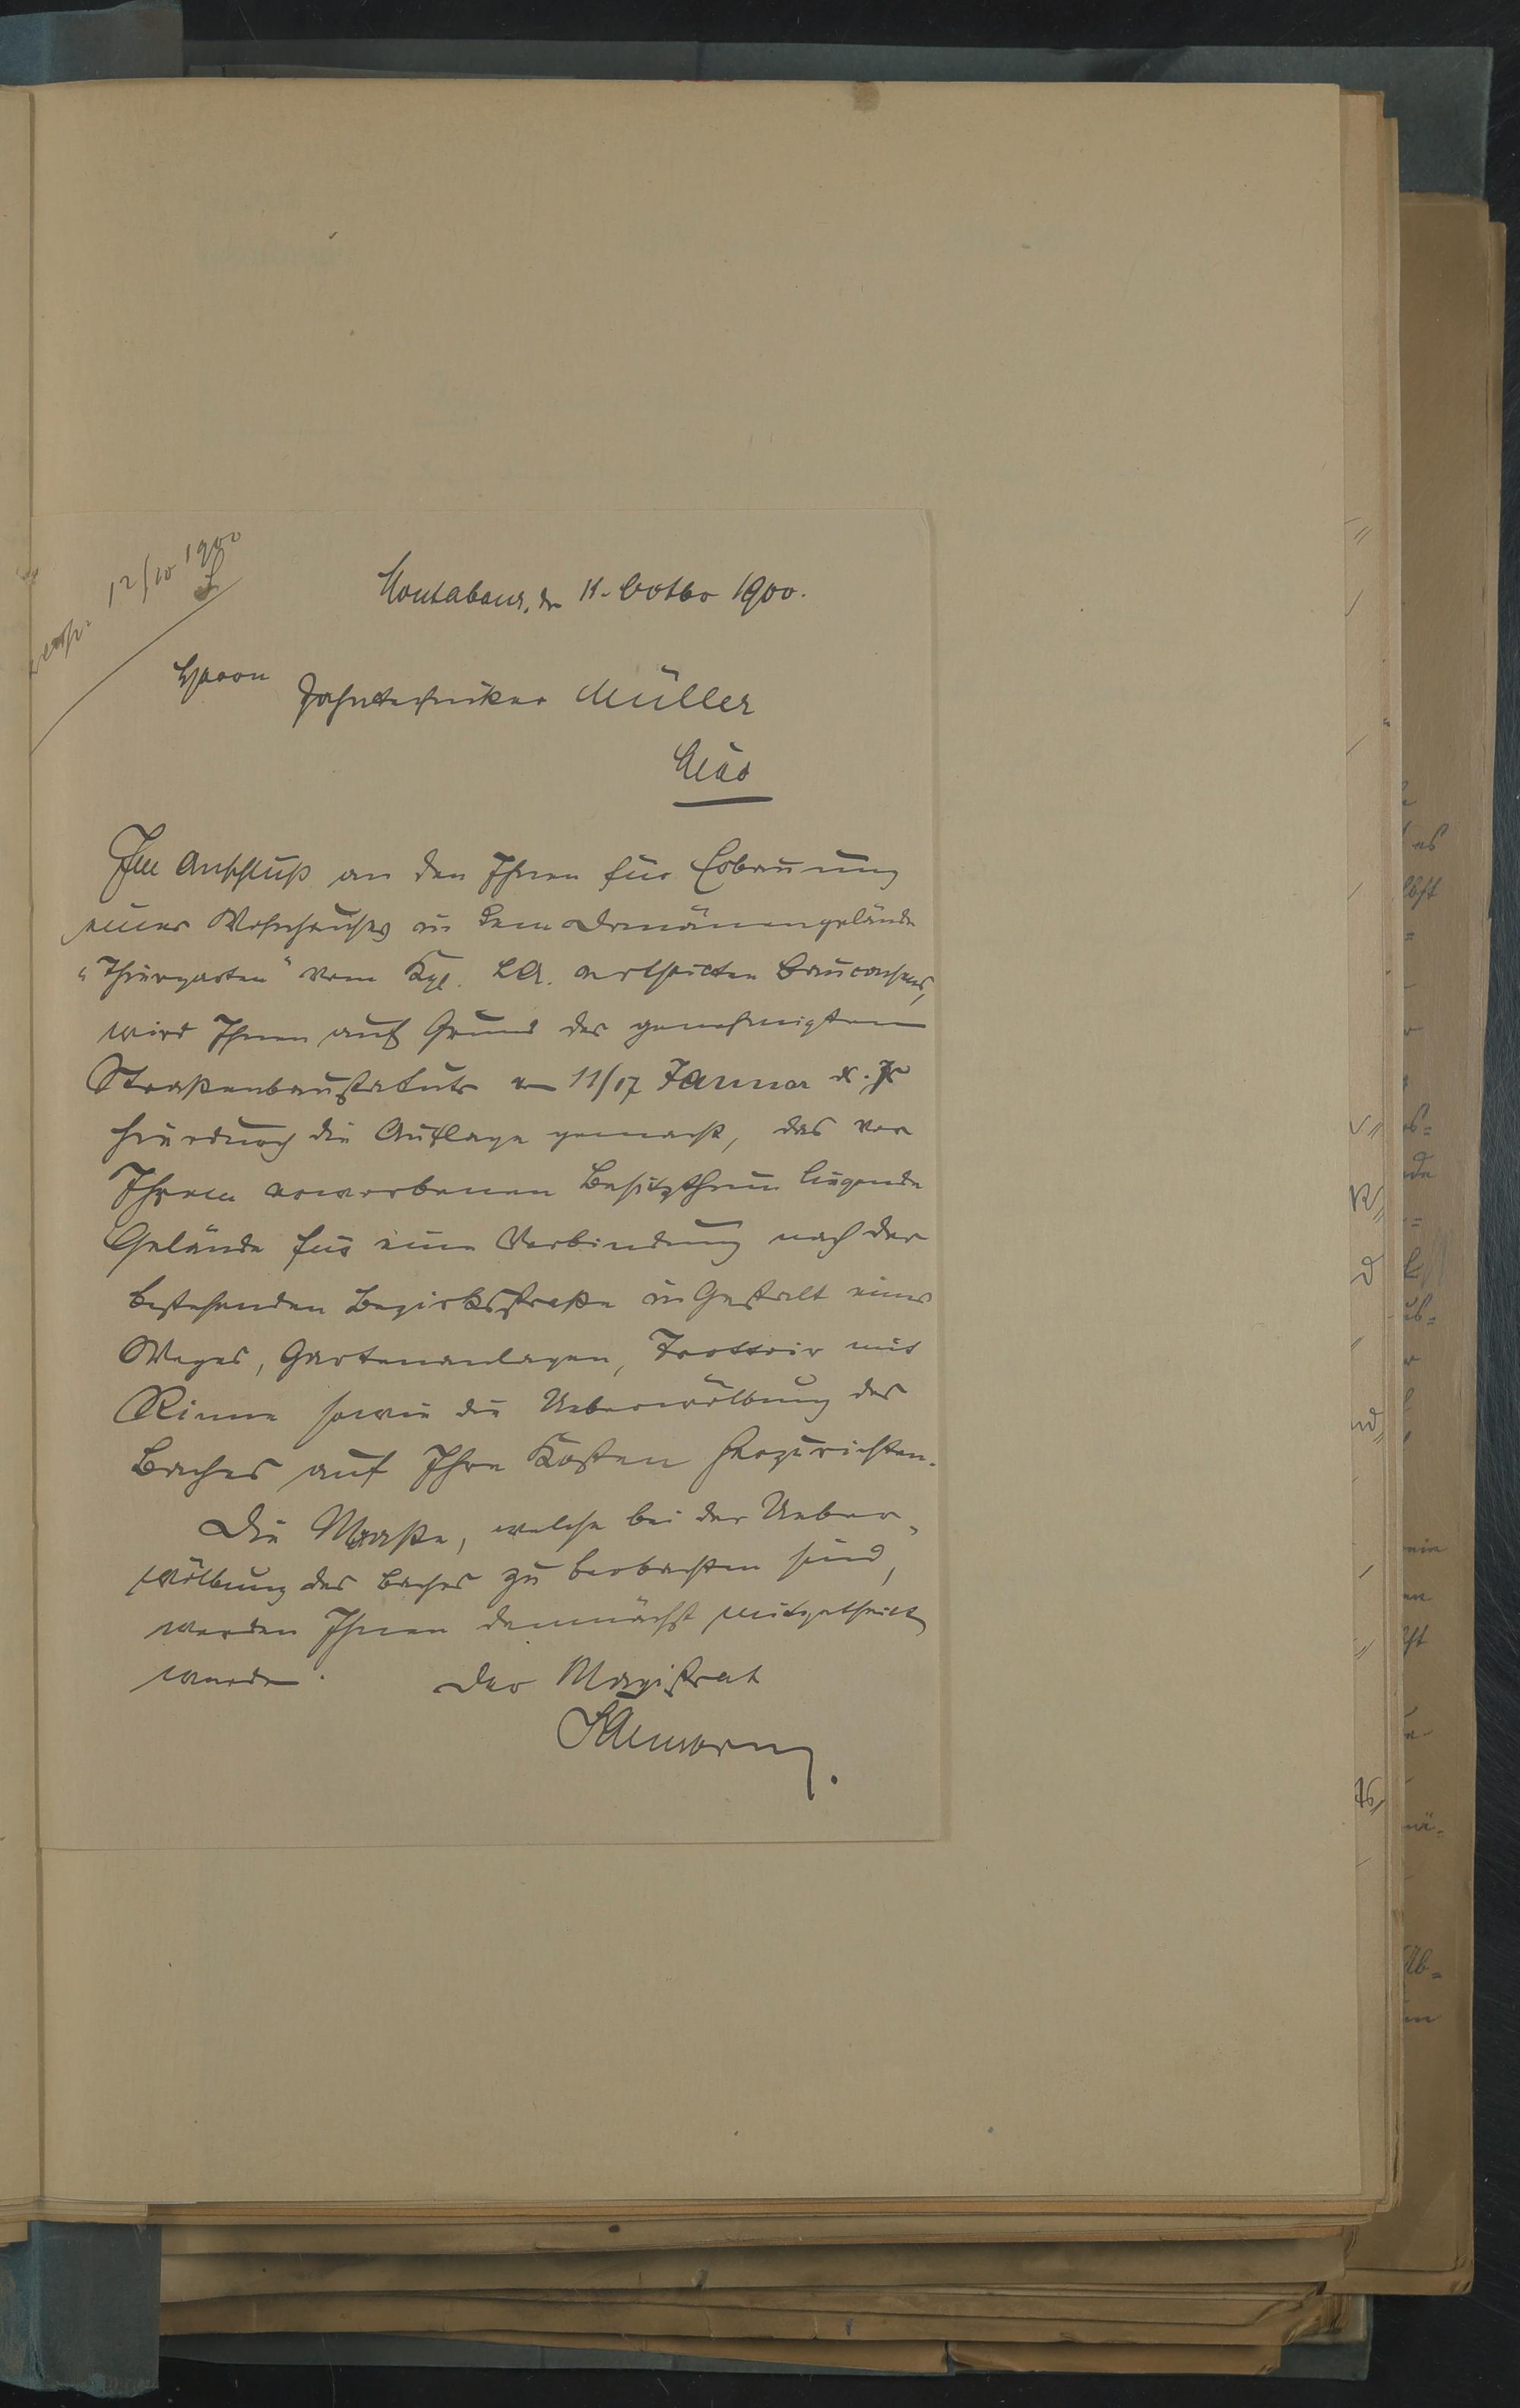 12/10 1900
Montabaur, dn 11. Octbr 1900.
Herrn
Zahntechniker Müller
Hier
Im Anschluß an den Ihnen für Erbauung
eines Wohnhauses in dem Domänengelände
"Thiergarten" vom Kgl. L.R. ertheilten Bauconsens,
wird Ihnen auf Grund des genehmigten
Straßenbaustatuts vom 11/17 Januar d. Js
hierdurch die Auflage gemacht, das vor
Ihrem erworbenen Besitzthum liegende
Gelände für eine Verbindung nach der
bestehenden Bezirksstraße in Gestalt eines
Weges, Gartenanlagen, Trottoir mit
Rinne sowie die Ueberwölbung des
Baches auf Ihre Kosten herzurichten.
Die Maaße, welche bei der Ueber-
wölbung des Baches zu beobachten sind,
werden Ihnen demnächst mitgetheilt
werden.
Der Magistrat